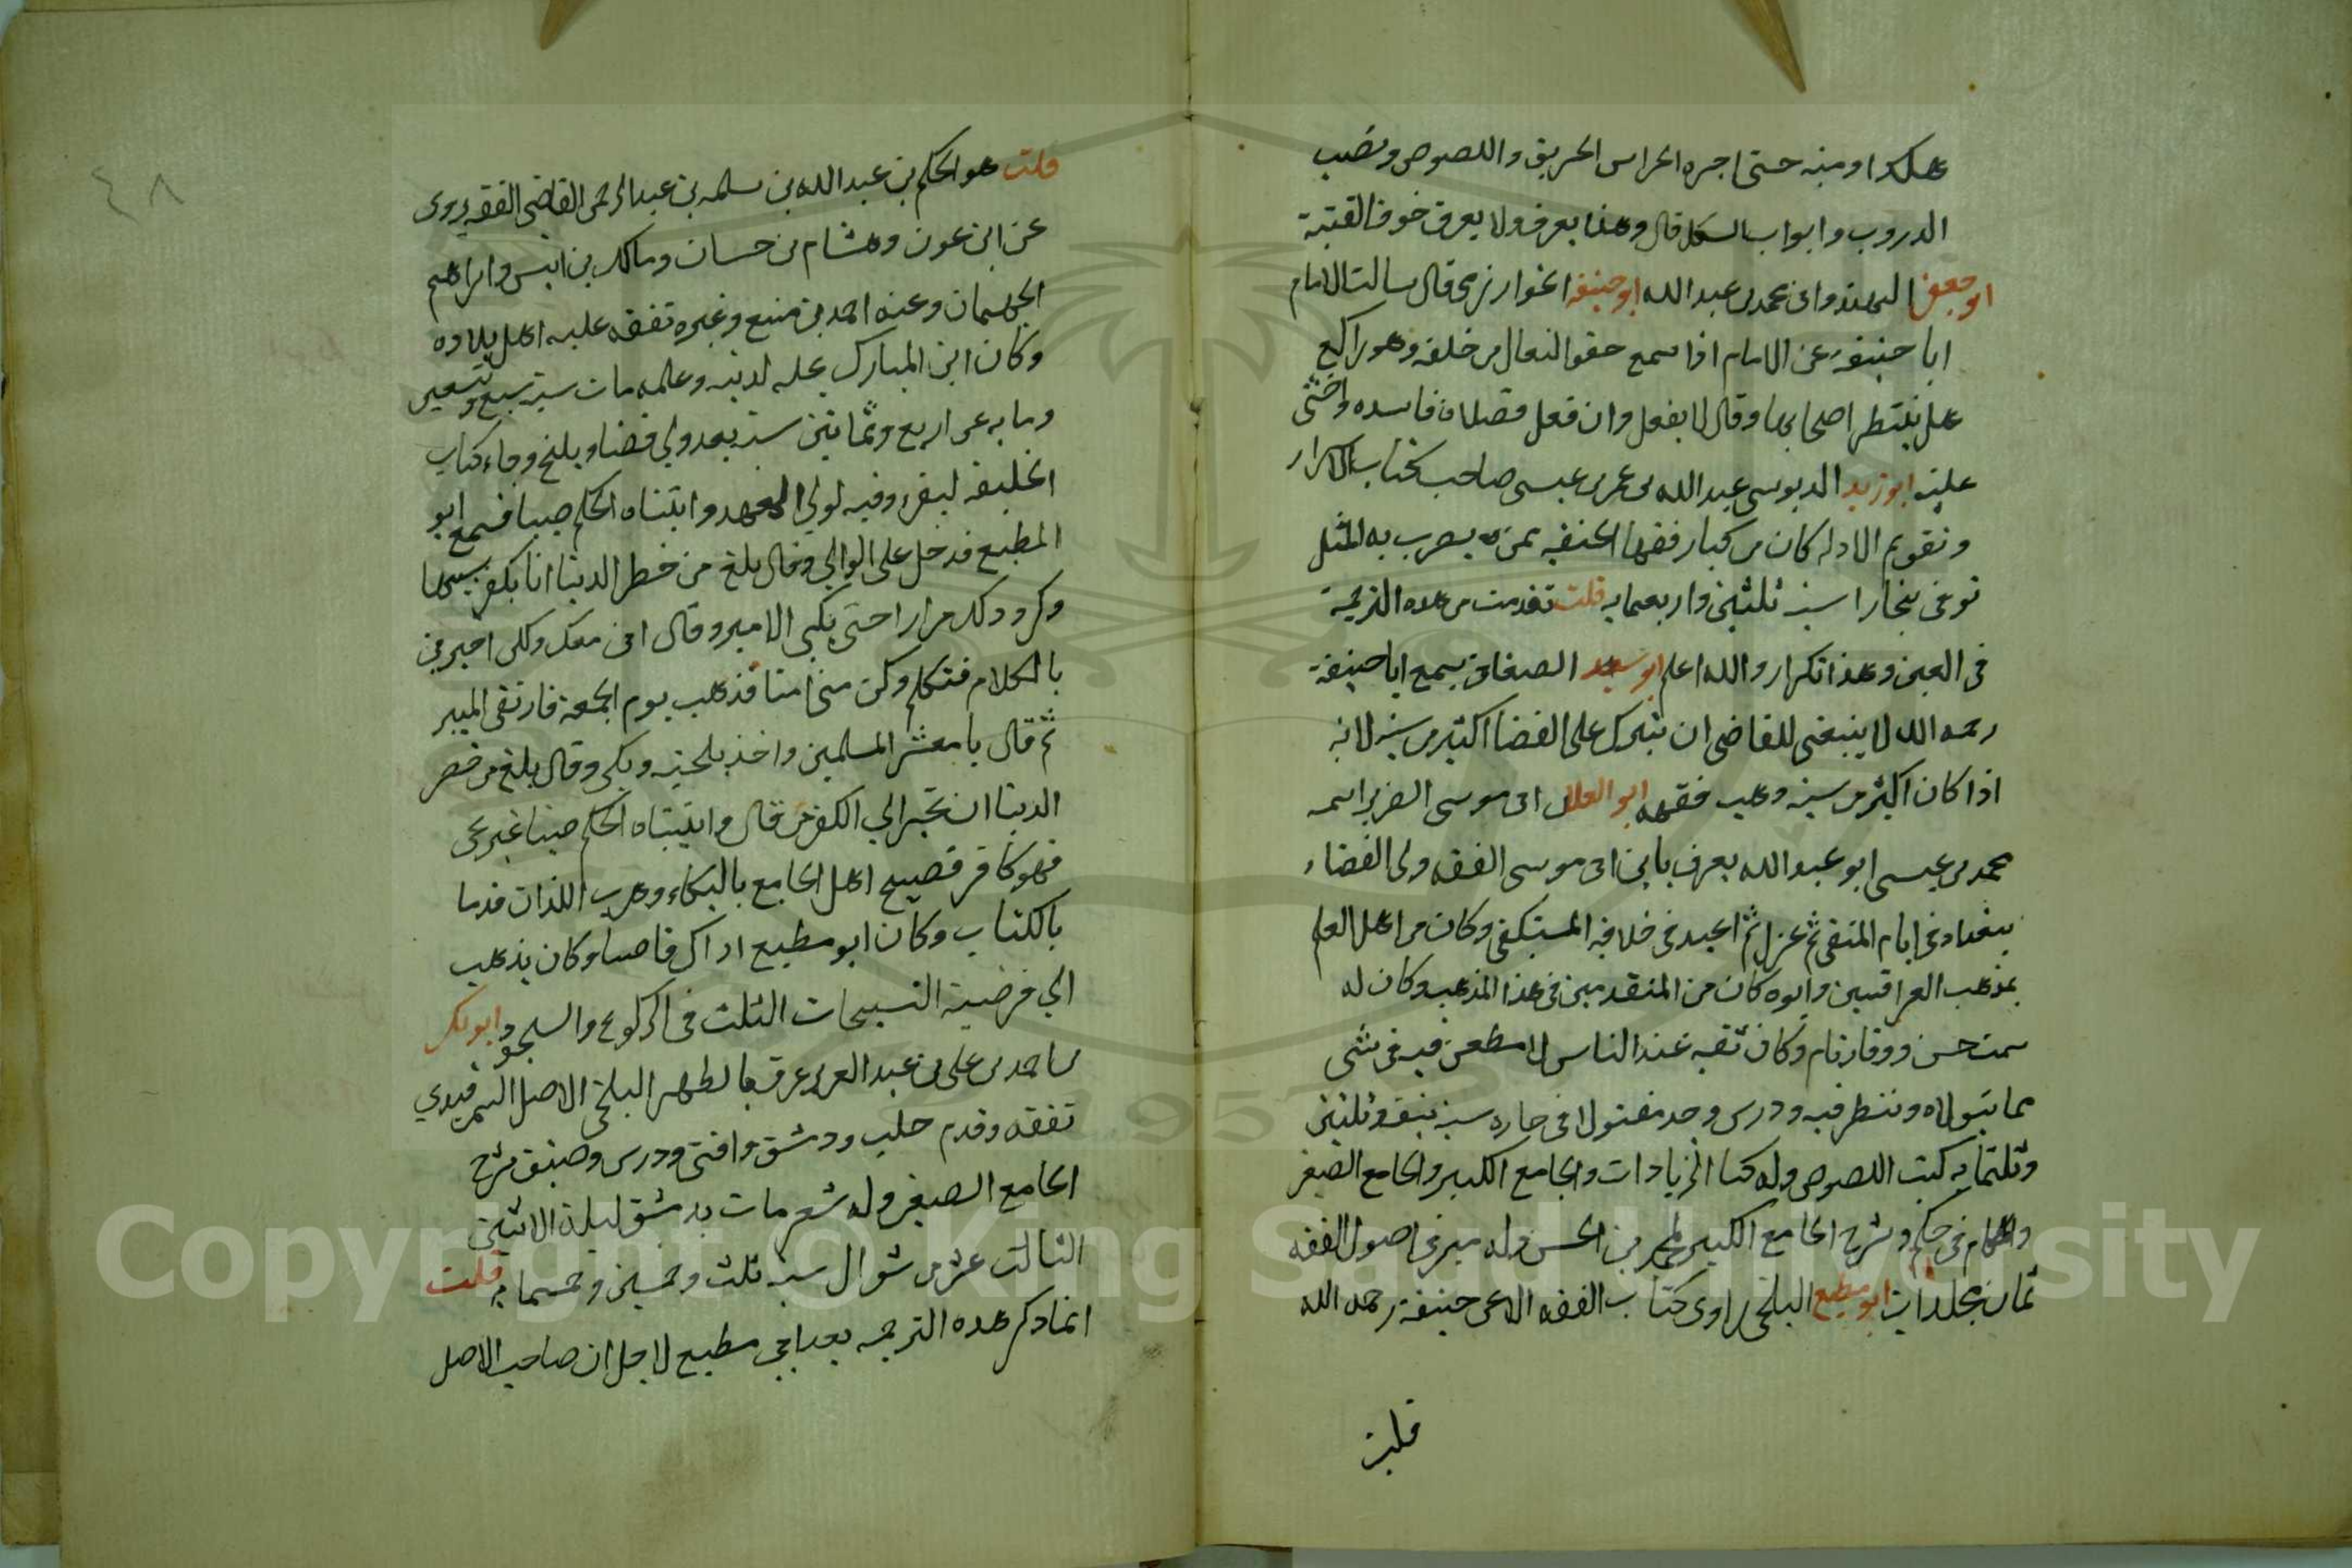 هلكوا ومنه حتى اجره الحراس الحريق واللصوص ونصب
الدروب وابواب السكك قال وهذا يعرف ولا يعرف خوف الفتنة
ابو جعفر الهندوانى محمد بن عبد الله ابو حنيفة الخوارزمى قال سالت الامام
ابا حنيفة عن الامام اذا سمع خفق النعال من خلفه وهو راكع
هل ينتظر اصحابها وقال لا يفعل وان فعل فصلاته فاسده واخشى
عليه ابو زيد الدبوسى عبد الله بن عمر بن عيسى صاحب كتاب الاسرار
وتقويم الادله كان من كبار فقها الحنفيه ممن يضرب به المثل
توفى ببخارا سنة ثلثين واربعمايه قلت تقدمت من هذه الترجمة
فى العين وهذا تكرار والله اعلم ابو سعيد الصغانى سمع ابا حنيفة
رحمه الله لا ينبغى للقاضى ان يترك على القضا اكثر من سنة لانه
اذا كان اكثر من سنة ذهب فقهه ابو العلا ابى موسى الضرير اسمه
محمد بن عيسى ابو عبد الله يعرف بابن ابى موسى الفقه ولى القضاء
ببغداد فى ايام المتقى ثم عزل ثم اعيد فى خلافة المستكفى وكان من اهل العلم
بمذهب العراقيين وابوه كان من المتقدمين فى هذا المذهب وكان له
سمت حسن ووقار تام وكان ثقه عند الناس لا مطعن فيه فى شى
مما يتولاه وينظر فيه ودرس وجد مقتولا فى داره سنة نيف وثلثين
وثلثمايه كبت اللصوص وله كتا الزيادات والجامع الكبير والجامع الصغير
وشرح الجامع الكبير لمحمد بن الحسن وله فى اصول الفقه
ثمان مجلدات ابو مطيع البلخى راوى كتاب الفقه الاعن حنيفة رحمه الله
قلت
قلت هو الحكم بن عبد الله بن سلمه بن عبد الرحمن القاضى الفقه يروى
عن ابن عون وهشام بن حسان ومالك بن انس وابراهيم
الجى طهمان وعنه احمد بن منيع وغيره تفقه عليه اهل بلاده
وكان ابن المبارك يجله لدينه وعلمه مات سنة سبع وتسعين
ومايه عن اربع وثمانين سنة بعد ولى قضاء بلخ وجاء كتاب
الخليفه ليقرء وفيه لولي العهد واتيناه الحكم صبيا فسمع ابو
المطيع فدخل على الوالي وقال بلغ من خطر الدنيا انا نكفر بسببها
وكرر ذلك مرارا حتى بكي الامير وقال انى معك ولكن اجترى
بالكلام فتكلم وكن منى امنا فذهب يوم الجمعة فارتقى المنبر
ثم قال يا معشر المسلمين واخذ بلحيته وبكى وقال بلغ من خطر
الدنيا ان تجر الي الكفر من قال واتيناه الحكم صبيا غير يحى
فهو كافر فضج اهل الجامع بالبكاء وهرب اللذان قدما
بالكتاب وكان ابو مطيع اذ اك قاضيا وكان يذهب
الي فرضية التسبيحات الثلث فى الركوع والسجود ابو بكر
بن احمد بن على بن عبد العزيز عرف بالظهير البلخى الاصل السمرقندي
تفقه وقدم حلب ودمشق وافتى ودرس وصنف شرح
الجامع الصغير وله شعر مات بدمشق ليلة الاثنين
الثالث عشر من شوال سنة ثلث وخمسين وخمسمايه قلت
انما ذكر هذه الترجمه بعد ابى مطيع لاجل ان صاحب الاصل
٤٨
Copyright © King Saud University